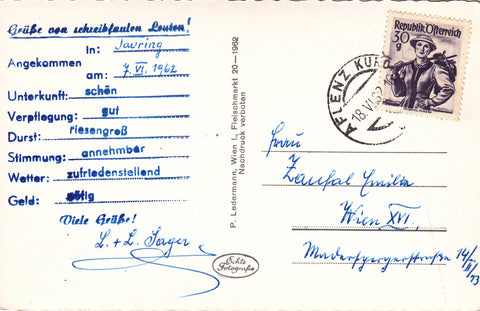 Grüße von schreibfaulen Leuten!
in: Jauring
Angekommen
am: 7. VI. 1962
Unterkunft: schön
Verpflegung: gut
Durst: riesengroß
Stimmung: annehmbar
Wetter: zufriedenstellend
Geld: nötig
Viele Grüße!
L. + L. Jager
P. Ledermann, Wien I., Fleischmarkt 20 — 1962
Nachdruck verboten
Echte
Fotografie
Republik Österreich
30
g
AFLENZ KURORT
18. VI. 62
Frau
Zaufal Emilia
Wien XVI.
Maderspergerstraße 14/
II/
13